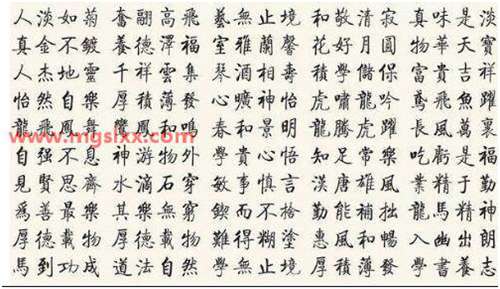 人淡如菊 奮翮高飛 藝無止境 和敬清寂 真味是淡
真金不鍍 養德澤福 室雅蘭馨 花好月圓 物華天寶
人杰地靈 千祥雲集 琴酒相壽 學儲保 富貴吉祥
怡然自樂 厚積薄發 心曠神怡 虎嘯龍吟 鳶飛魚躍
龍飛鳳舞 鸞鳳和鳴 春和景明 龍騰虎躍 長風萬裏
www.mgslxx.com
自強不息 神游物外 學貴心悟 知足常樂 吃虧是福
見賢思齊 水滴石穿 敏事慎言 漢唐雄風 業精于勤
爲善最樂 其樂無窮 鍥而不捨 勤能補拙 龍馬精神
厚德載物 厚德載物 難得糊塗 惠風和暢 入幽出朗
馬到功成 道法自然 學無止境 厚積薄發 學書養志